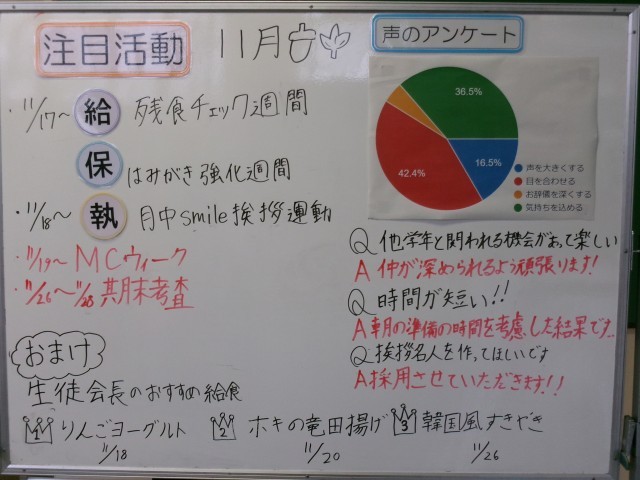 注目活動
11月
声のアンケート
・11/17～ 給 残食チェック週間
保 はみがき強化週間
・11/18～ 執 月中smile挨拶運動
・11/19～ MCウィーク
・11/26～11/28 期末考査
36.5%
16.5%
42.4%
声を大きくする
目を合わせる
お辞儀を深くする
気持ちを込める
Q 他学年と関われる機会があって楽しい
A 仲が深められるよう頑張ります!
Q 時間が短い!!
A 朝の準備の時間を考慮した結果です..
Q 挨拶名人を作ってほしいです
A 採用させていただきます!!
おまけ
生徒会長のおすすめ給食
1 りんごヨーグルト 2 ホキの竜田揚げ 3 韓国風すきやき
11/18 11/20 11/26